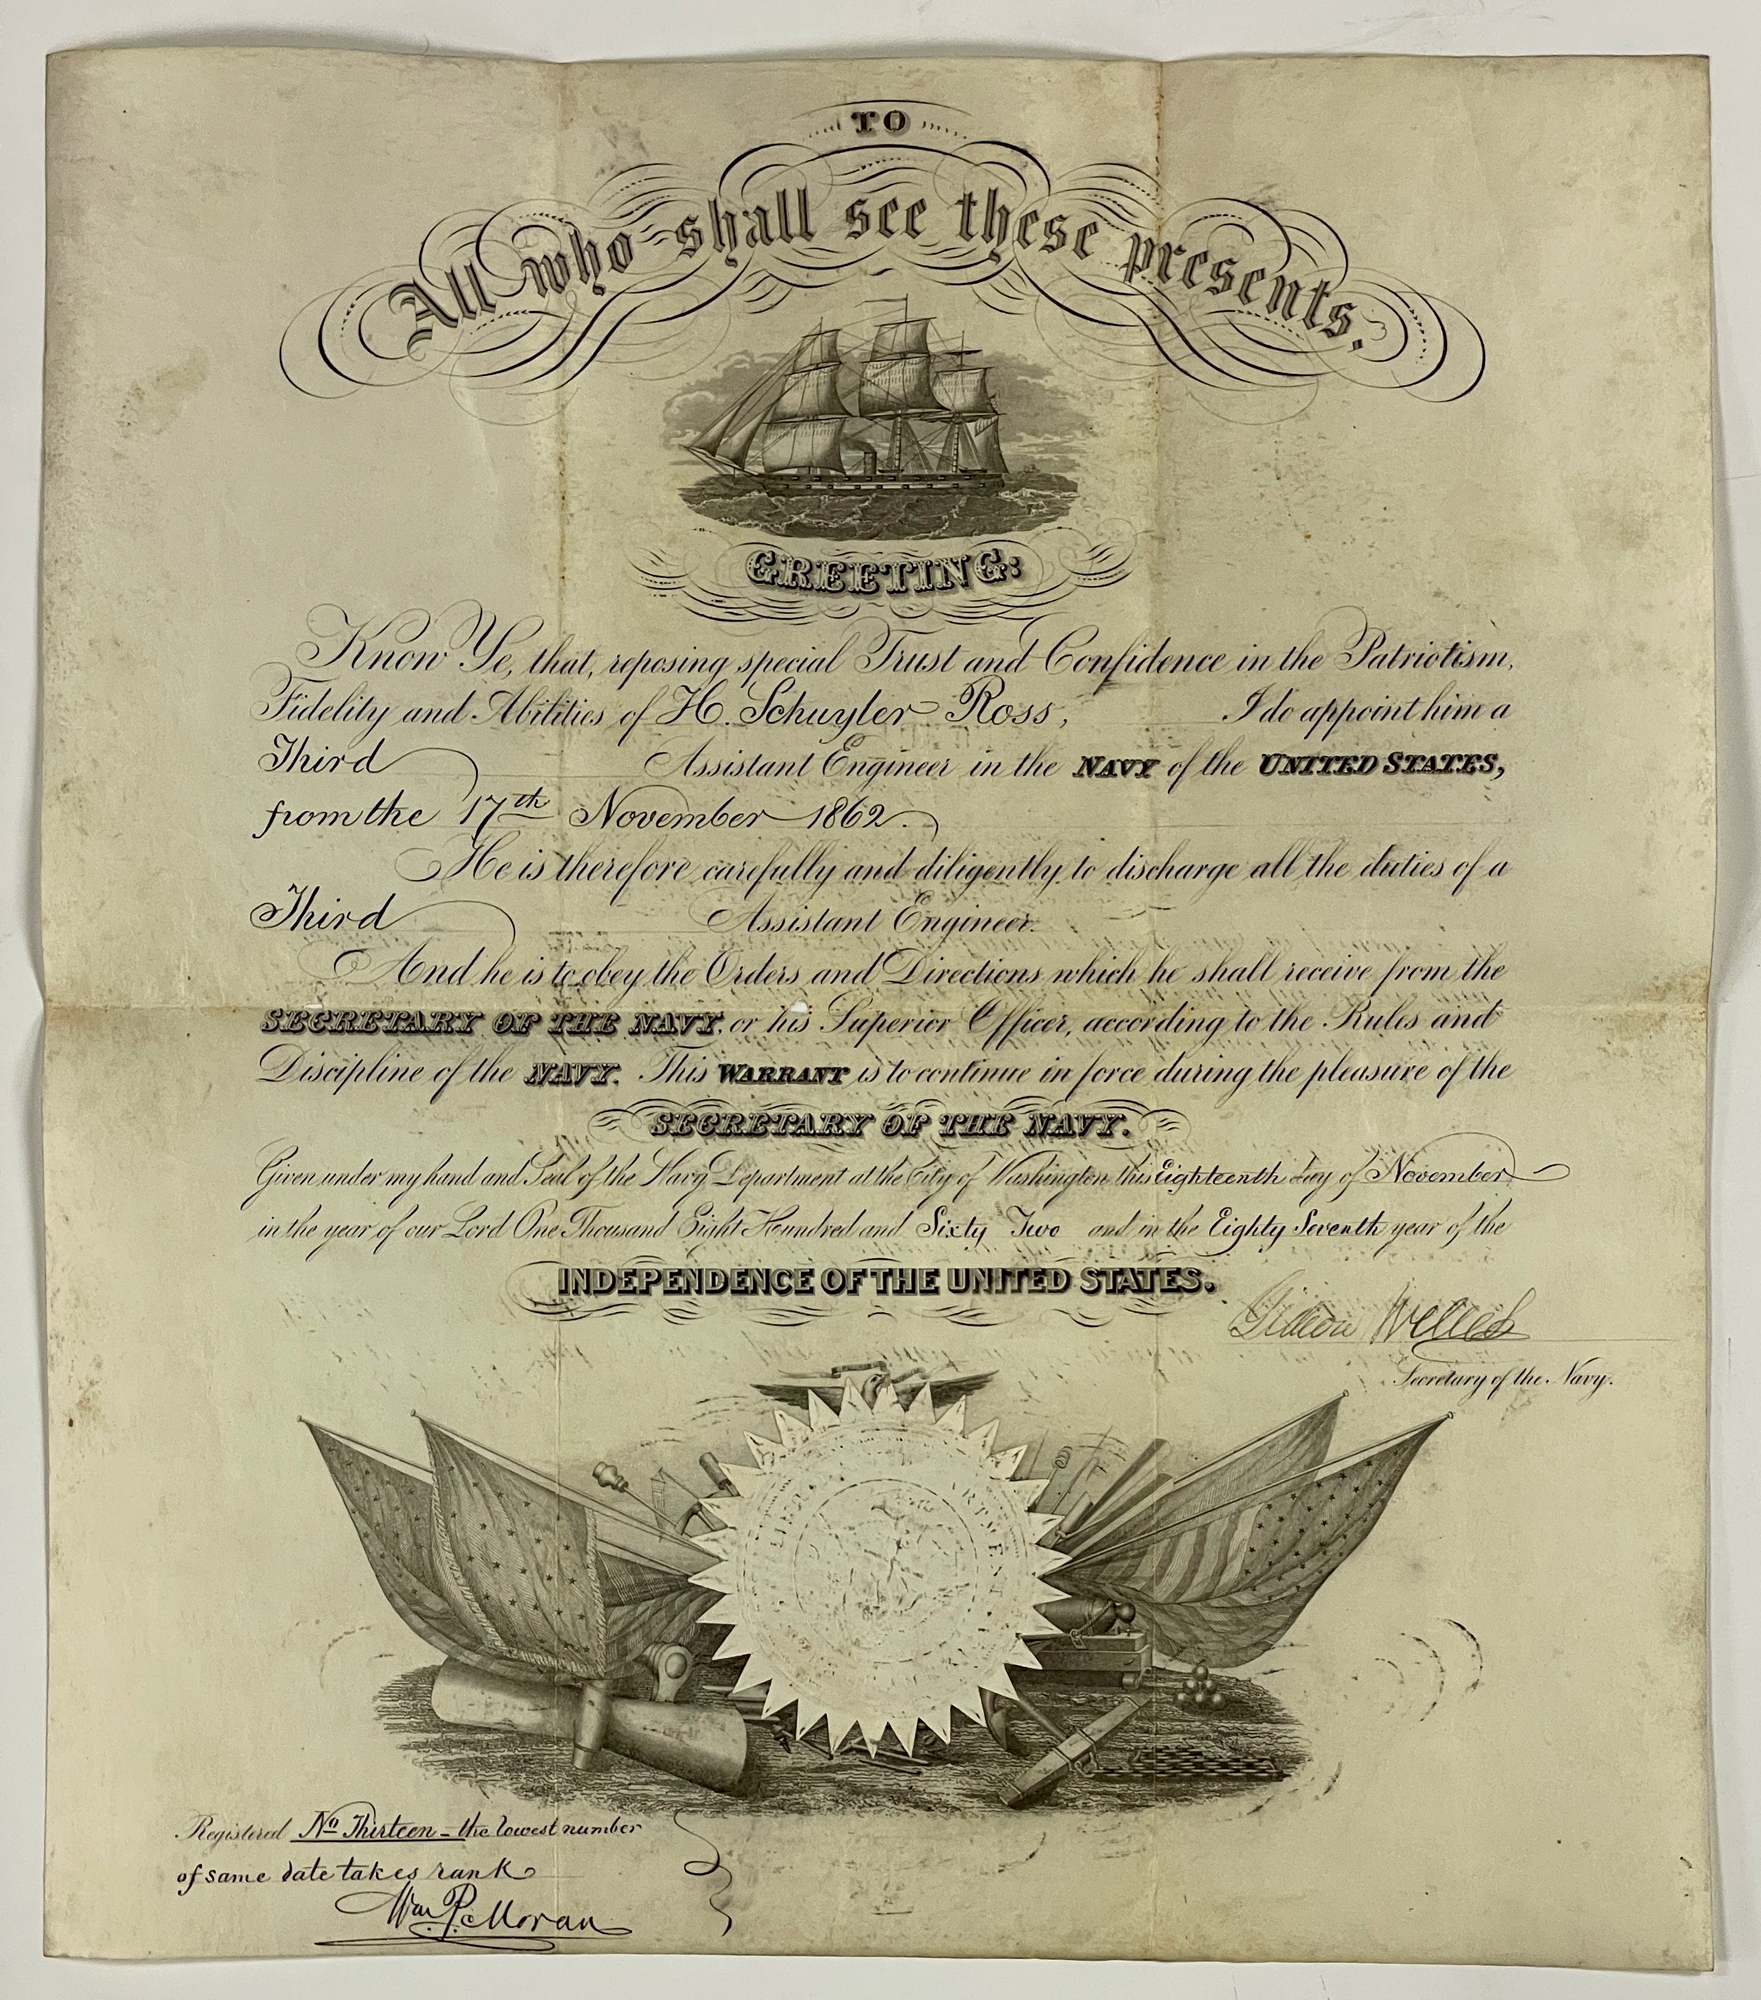 TO
All who shall see these presents.
GREETING:
Know Ye, that, reposing special Trust and Confidence in the Patriotism,
Fidelity and Abilities of H. Schuyler Ross, I do appoint him a
Third Assistant Engineer in the NAVY of the UNITED STATES,
from the 17th November 1862.
He is therefore carefully and diligently to discharge all the duties of a
Third Assistant Engineer.
And he is to obey the Orders and Directions which he shall receive from the
SECRETARY OF THE NAVY. or his Superior Officer, according to the Rules and
Discipline of the NAVY. This WARRANT is to continue in force during the pleasure of the
SECRETARY OF THE NAVY.
Given under my hand and Seal of the Navy Department at the City of Washington this Eighteenth day of November
in the year of our Lord One Thousand Eight Hundred and Sixty Two and in the Eighty Seventh year of the
INDEPENDENCE OF THE UNITED STATES.
Gideon Welles
Secretary of the Navy.
Registered No Thirteen - the lowest number
of same date takes rank
Wm P. Moran